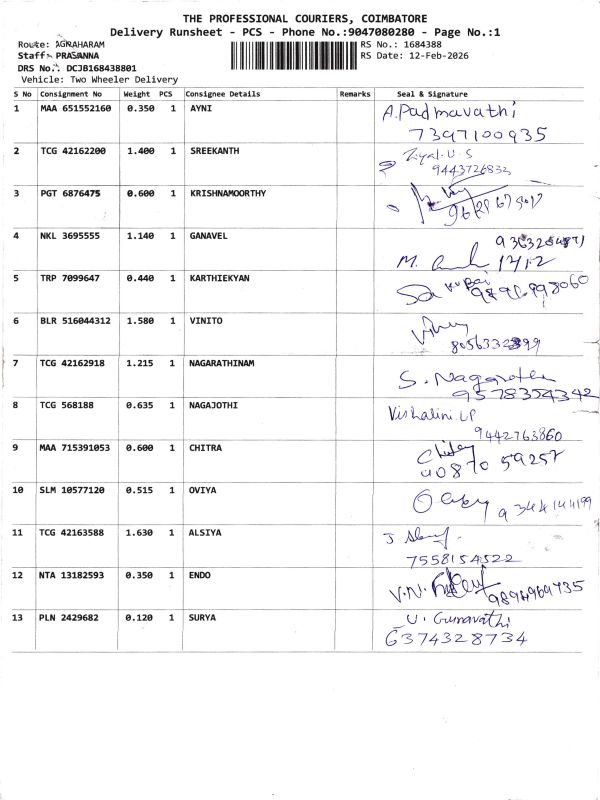 THE PROFESSIONAL COURIERS, COIMBATORE
Delivery Runsheet - PCS - Phone No.:9047080280 - Page No.:1
Route: AGRAHARAM
RS No.: 1684388
Staff: PRASANNA
RS Date: 12-Feb-2026
DRS No.: DCJB168438801
Vehicle: Two Wheeler Delivery
S No Consignment No Weight PCS Consignee Details Remarks Seal & Signature
1 MAA 651552160 0.350 1 AYNI A.Padmavathi
7397100935
2 TCG 42162200 1.400 1 SREEKANTH Ziyal.U.S
9443726833
3 PGT 6876475 0.600 1 KRISHNAMOORTHY
4 NKL 3695555 1.140 1 GANAVEL
M.
5 TRP 7099647 0.440 1 KARTHIEKYAN
6 BLR 516044312 1.580 1 VINITO
8056332399
7 TCG 42162918 1.215 1 NAGARATHINAM S.
9578354342
8 TCG 568188 0.635 1 NAGAJOTHI Vishalini.LP
9442763860
9 MAA 715391053 0.600 1 CHITRA
90870 59257
10 SLM 10577120 0.515 1 OVIYA
11 TCG 42163588 1.630 1 ALSIYA J
7558154522
12 NTA 13182593 0.350 1 ENDO V.N.
9894969735
13 PLN 2429682 0.120 1 SURYA U. Gunavathi
6374328734